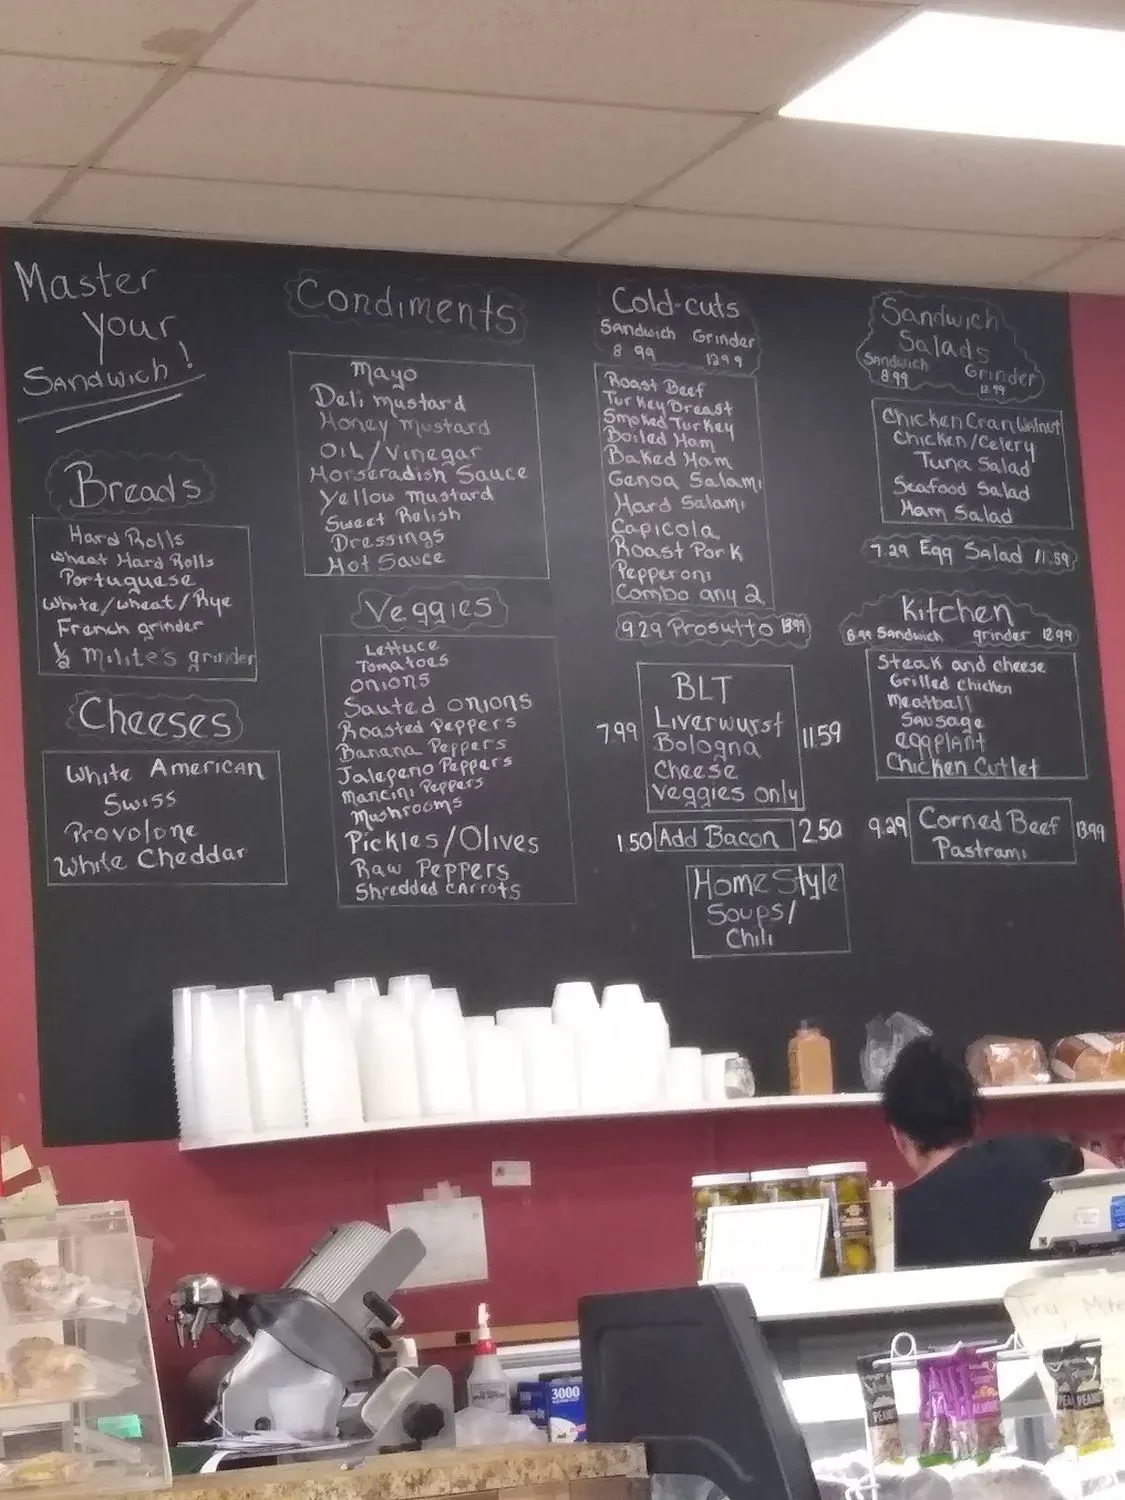 Master
your
Sandwich!
Breads
Hard Rolls
Wheat Hard Rolls
Portuguese
White/wheat/Rye
French grinder
½ Milite's grinder
Cheeses
White American
Swiss
Provolone
White Cheddar
Condiments
Mayo
Deli mustard
Honey mustard
OiL/Vinegar
Horseradish Sauce
Yellow mustard
Sweet Relish
Dressings
Hot Sauce
Veggies
Lettuce
Tomatoes
onions
Sauted onions
Roasted Peppers
Banana Peppers
Jalepeno Peppers
Mancini Peppers
Mushrooms
Pickles/Olives
Raw Peppers
Shredded carrots
Cold-cuts
Sandwich Grinder
8 99 12 99
Roast Beef
Turkey Breast
Smoked Turkey
Boiled Ham
Baked Ham
Genoa Salami
Hard Salami
Capicola
Roast Pork
Pepperoni
Combo any 2
9.29 Prosutto 13.99
BLT
7.99 Liverwurst 11.59
Bologna
Cheese
Veggies only
1.50 Add Bacon 2.50
Home Style
Soups/
Chili
Sandwich
Salads
Sandwich Grinder
8.99 12.99
Chicken Cran Walnut
Chicken/Celery
Tuna Salad
Seafood Salad
Ham Salad
7.29 Egg Salad 11.59
Kitchen
8.99 Sandwich grinder 12.99
Steak and cheese
Grilled Chicken
Meatball
Sausage
eggplant
Chicken Cutlet
9.29 Corned Beef 13.99
Pastrami
3000
Try